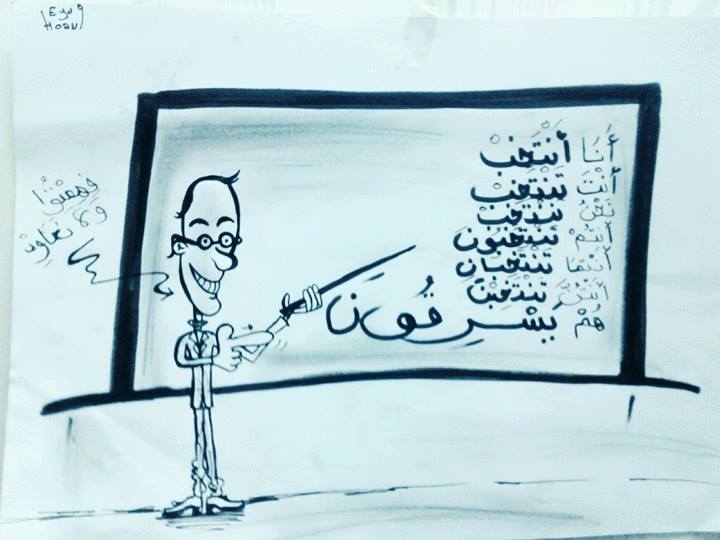 أَنَا أَنْتَخِبْ
أَنْتَ تَنْتَخِبْ
نَحْنُ نَنْتَخِبْ
أَنْتُمْ تَنْتَخِبُونَ
أَنْتُمَا تَنْتَخِبَانِ
أَنْتُنَّ تَنْتَخِبْنَ
هُمْ يَسْرِقُونَ
فِهِمْتُوا
ولا نعاود